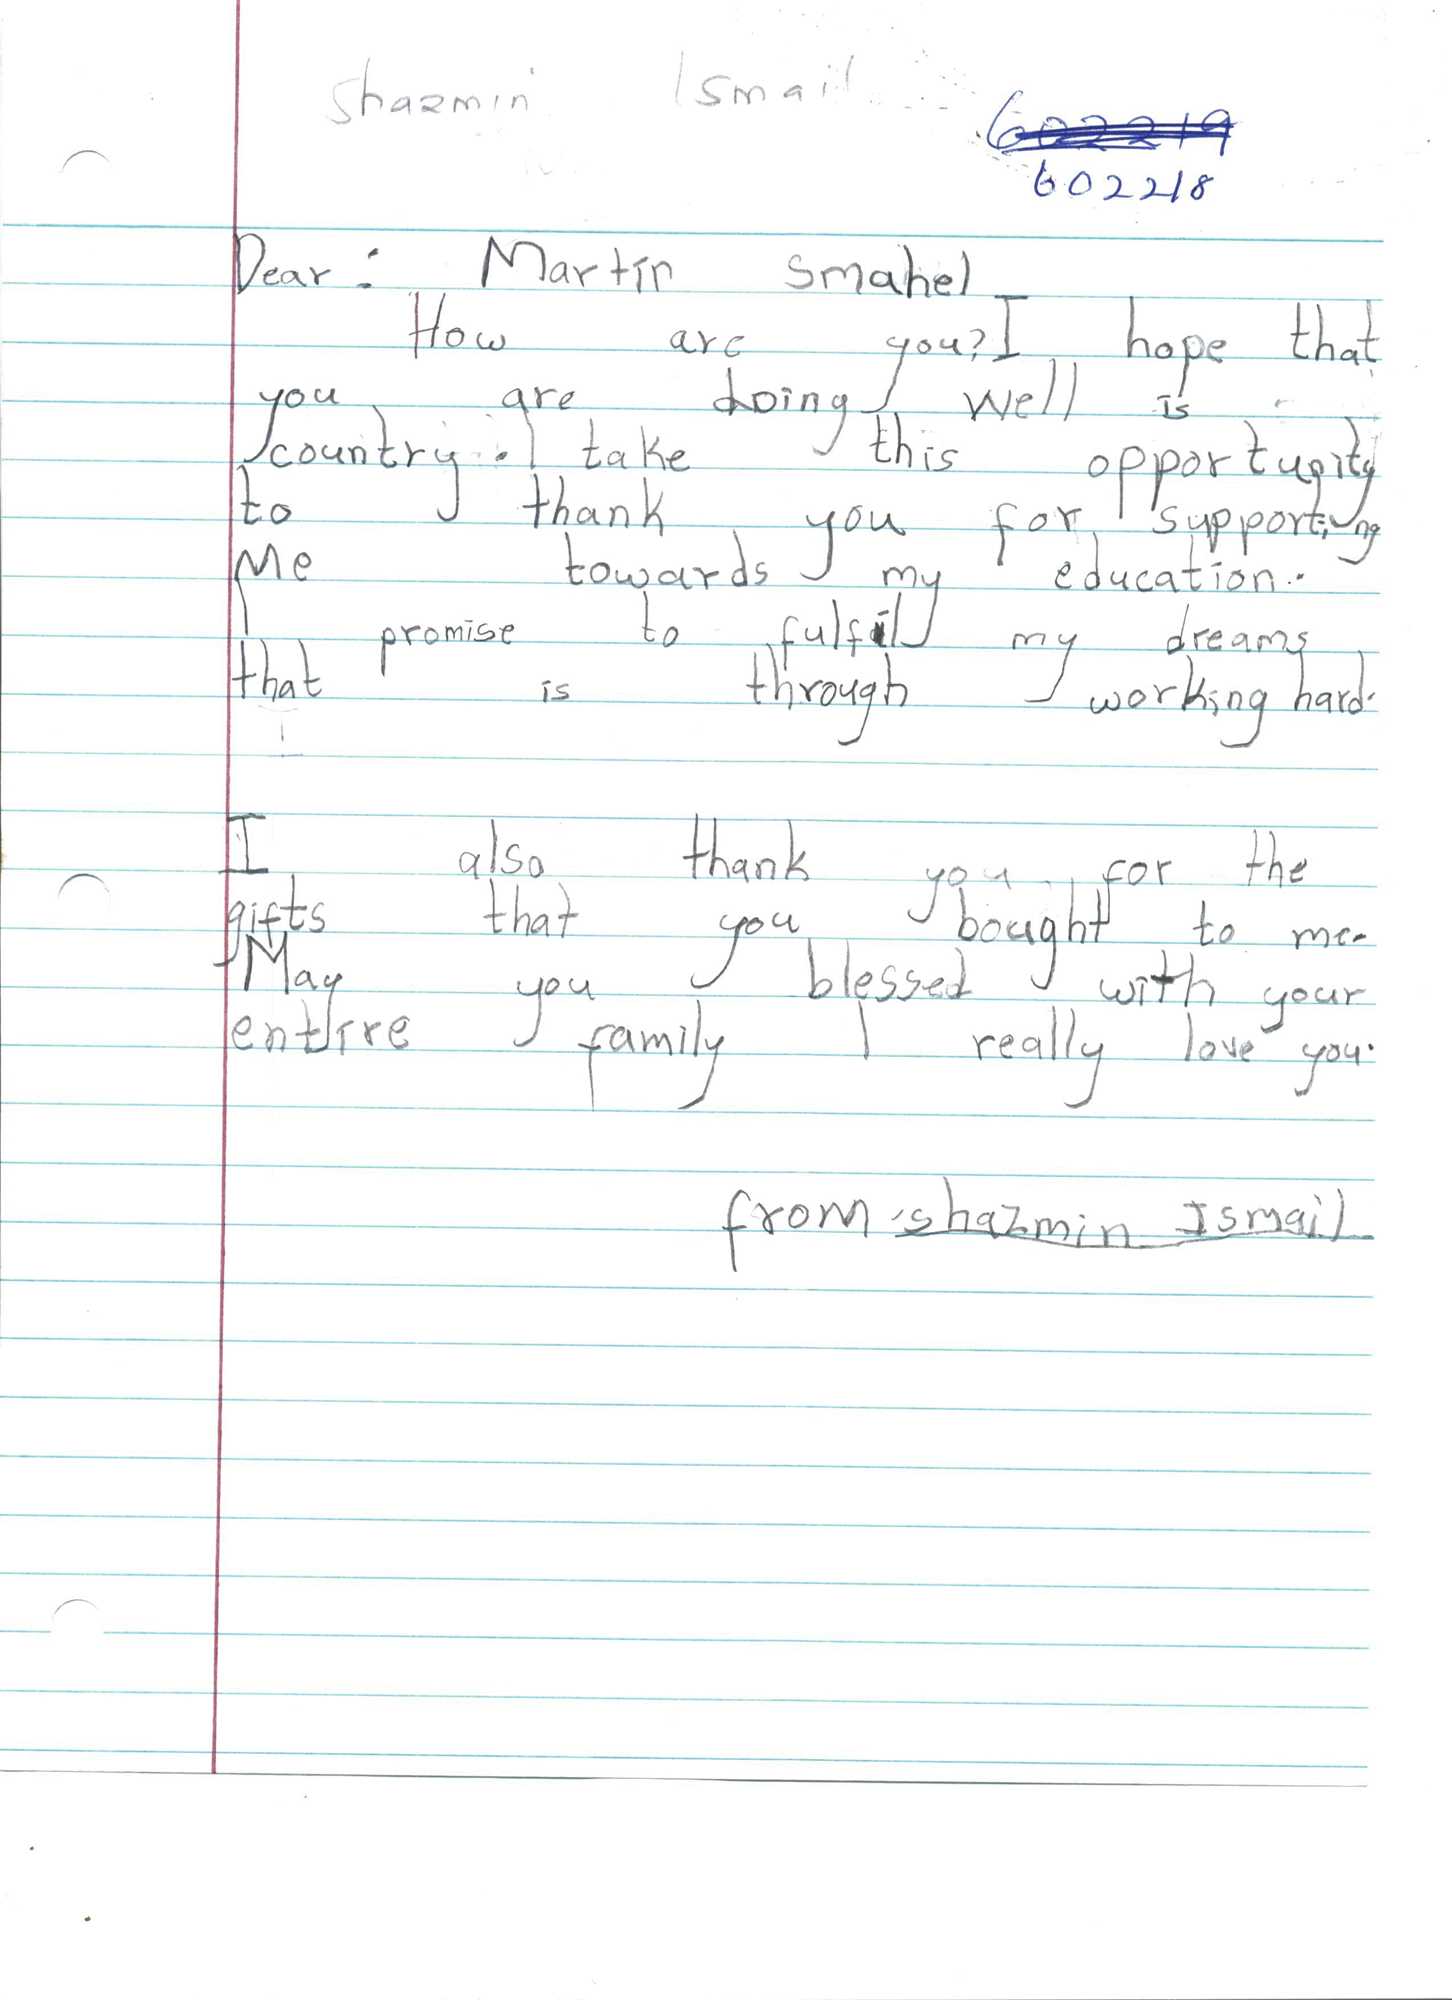 Shazmin Ismail
602219
602218
Dear: Martin Smahel
How are you? I hope that
you are doing well is
country. I take this opportunity
to thank you for supporting
Me towards my education.
I promise to fulfil my dreams
that is through working hard.
I also thank you for the
gifts that you bought to me.
May you blessed with your
entire family I really love you.
from shazmin Ismail